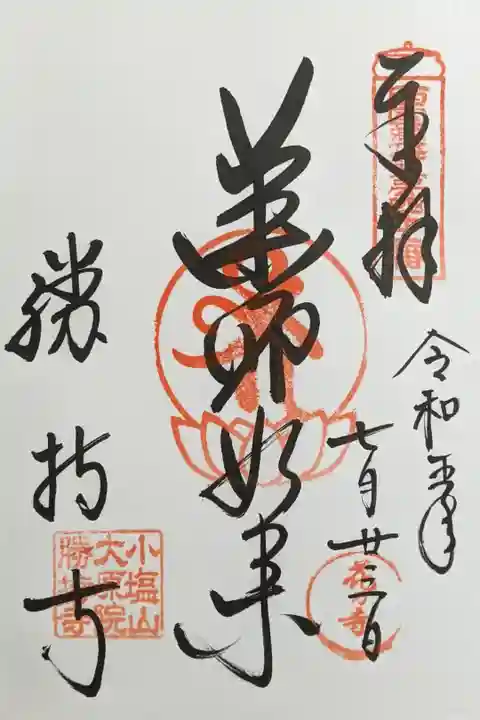 奉拝
令和五年
七月廿三日
薬師如来
勝持寺
小塩山
大原院
勝持寺
花の寺